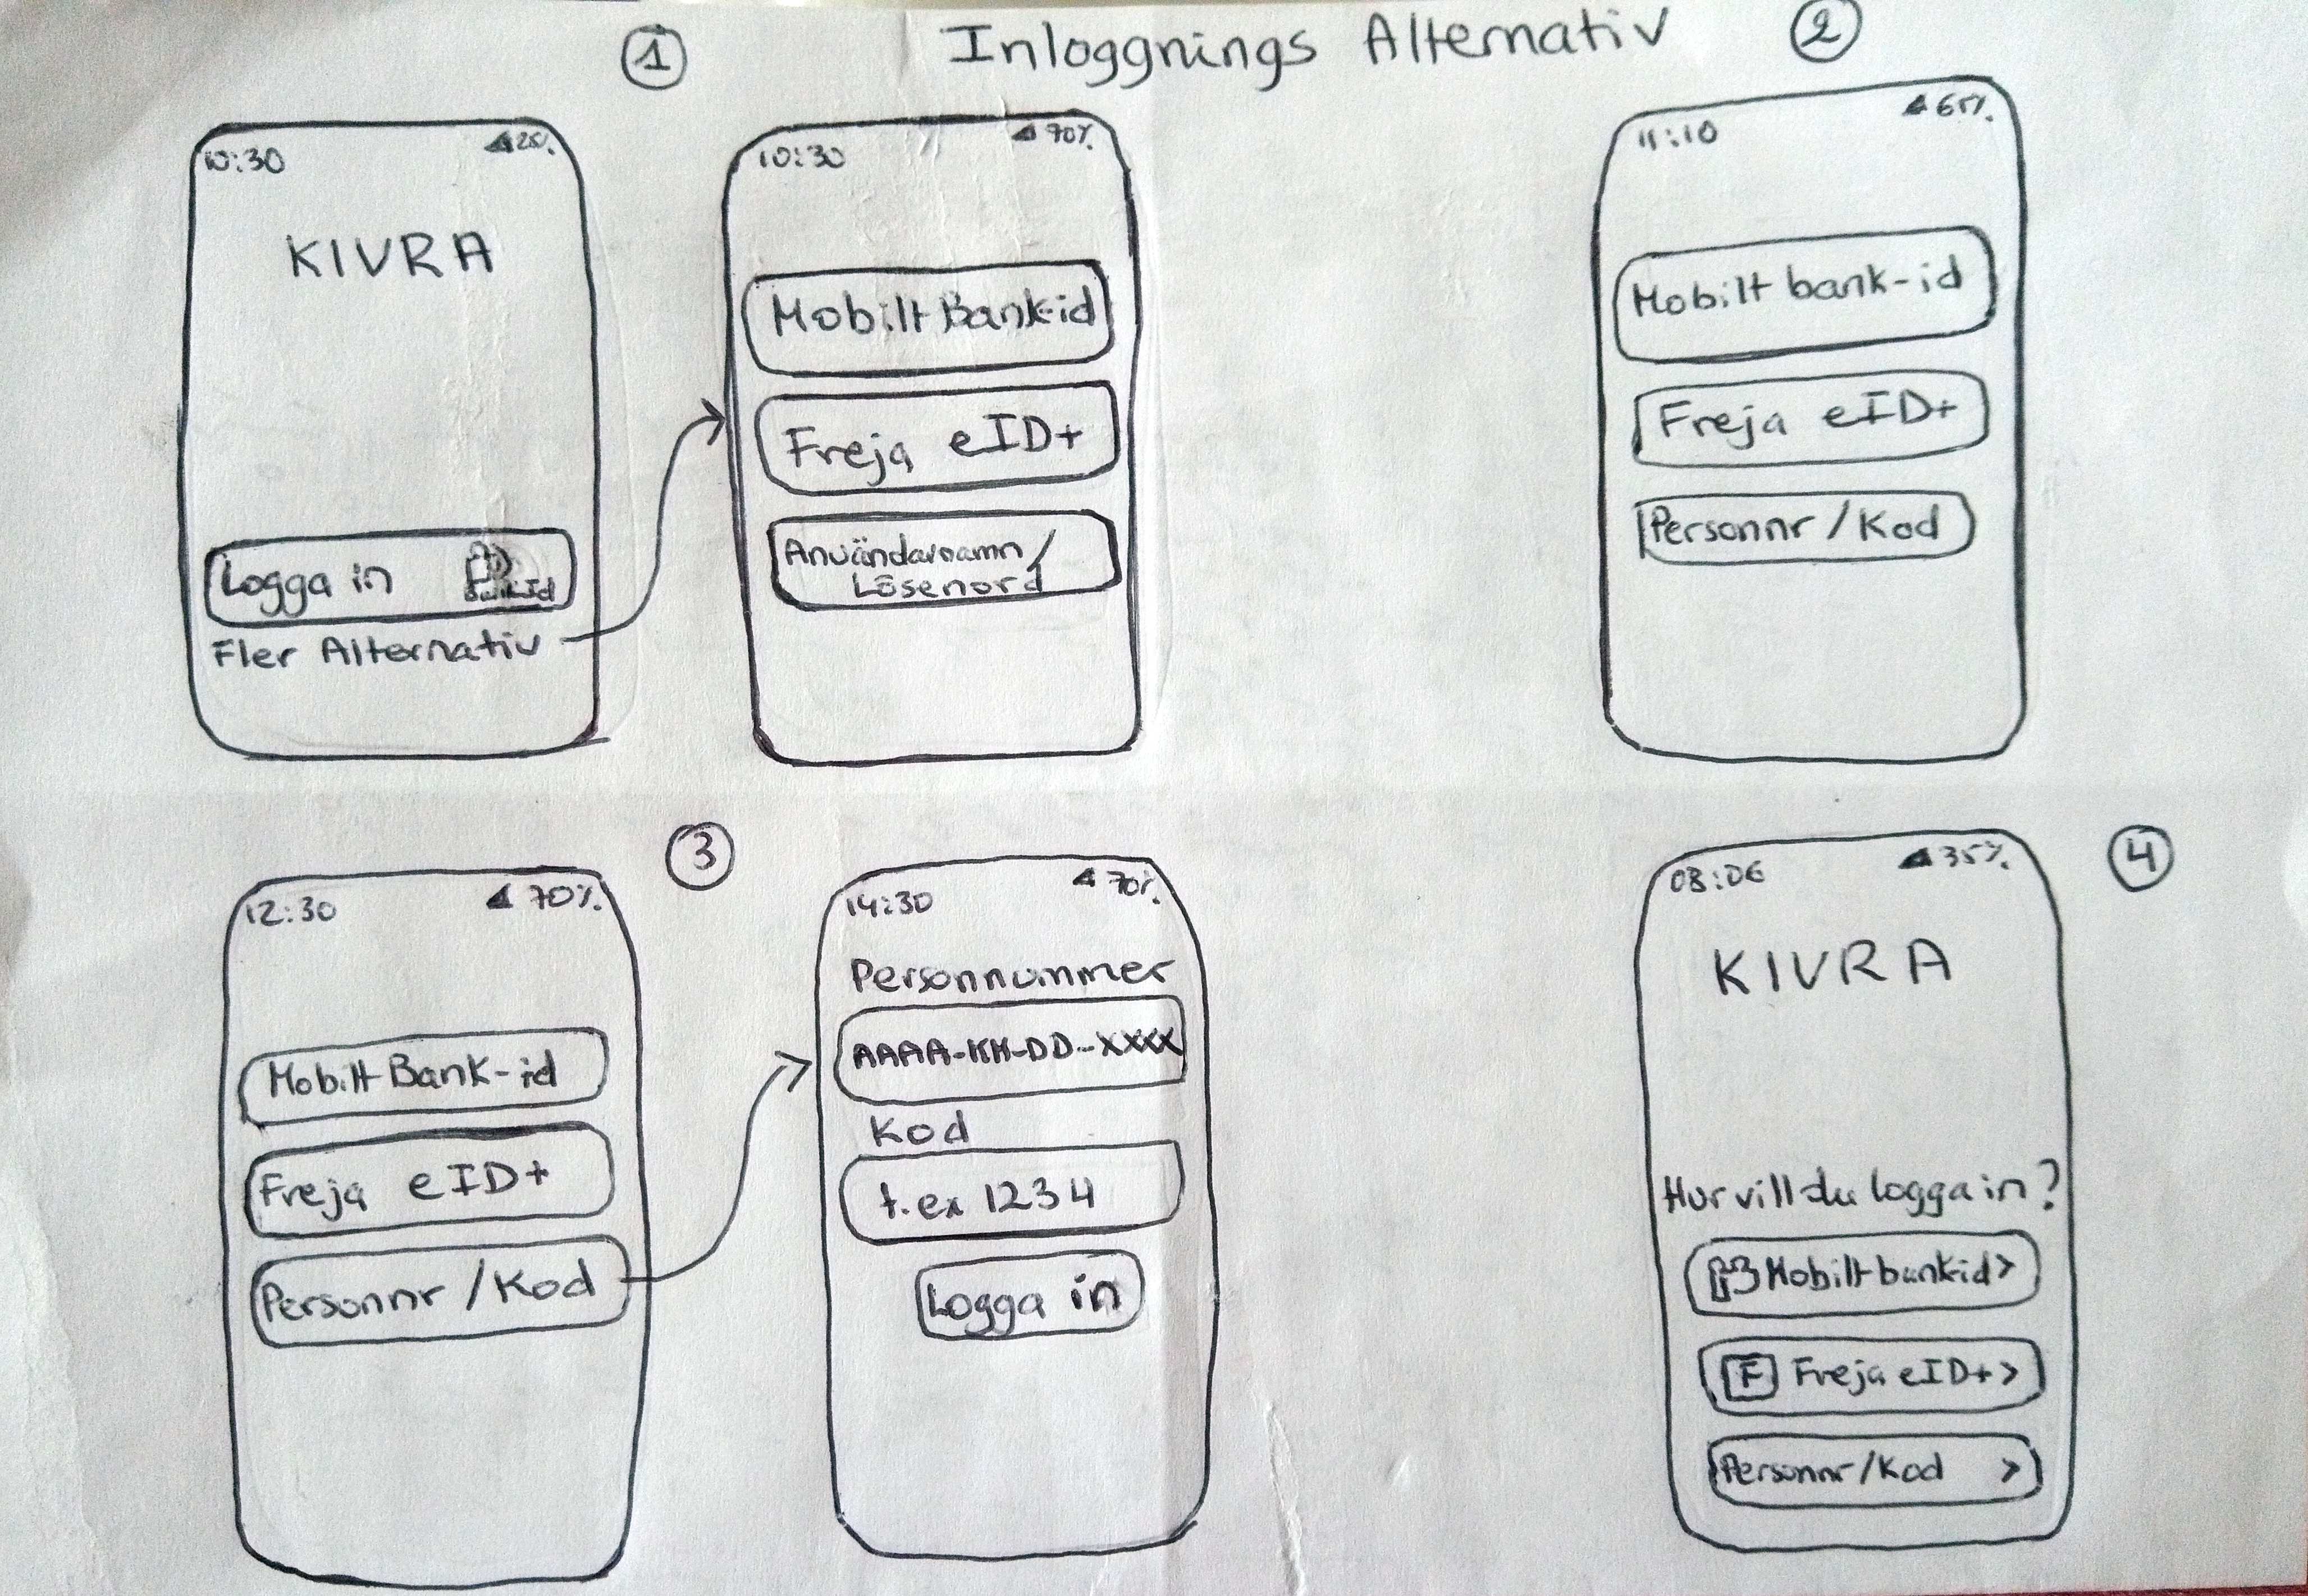 1
Inloggnings Alternativ
2
10:30
25%
KIVRA
Logga in
Fler Alternativ
10:30
70%
Mobilt Bank-id
Freja eID+
Användarnamn/
Lösenord
11:10
65%
Mobilt bank-id
Freja eID+
Personnr/Kod
3
12:30
70%
Mobilt Bank-id
Freja eID+
Personnr/Kod
14:30
70%
Personnummer
AAAA-KM-DD-XXXX
Kod
t.ex 1234
Logga in
4
08:06
35%
KIVRA
Hur vill du logga in?
Mobilt bankid>
F Freja eID+>
Personnr/Kod >